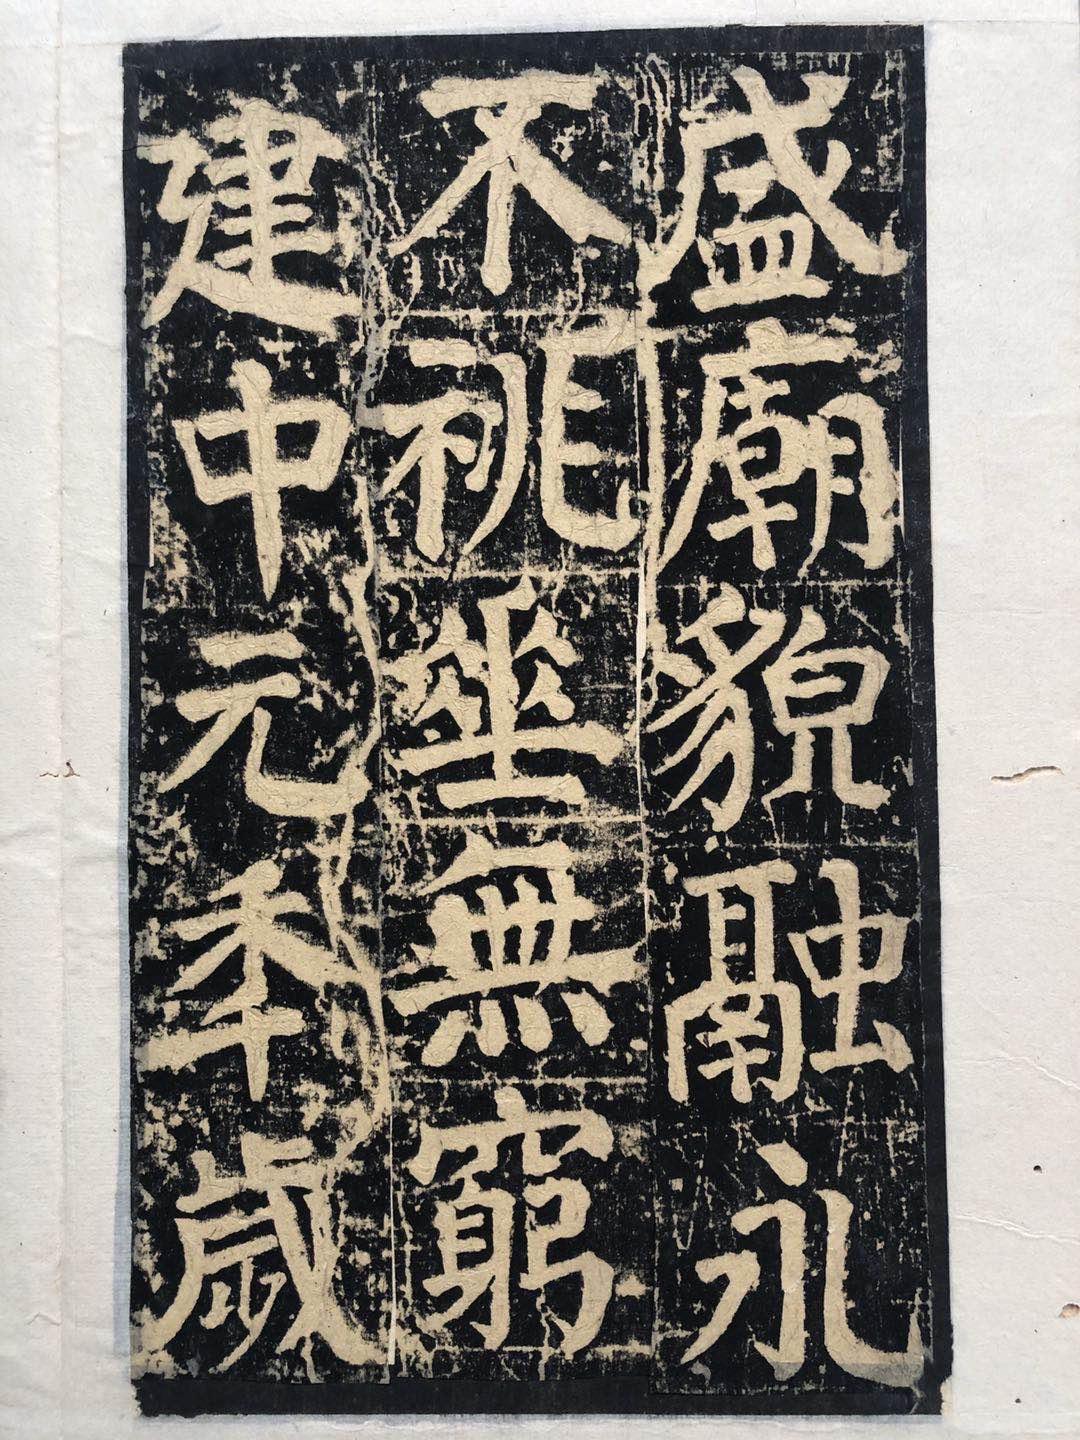 盛廟貌融永
不祧垂無窮
建中元年歲